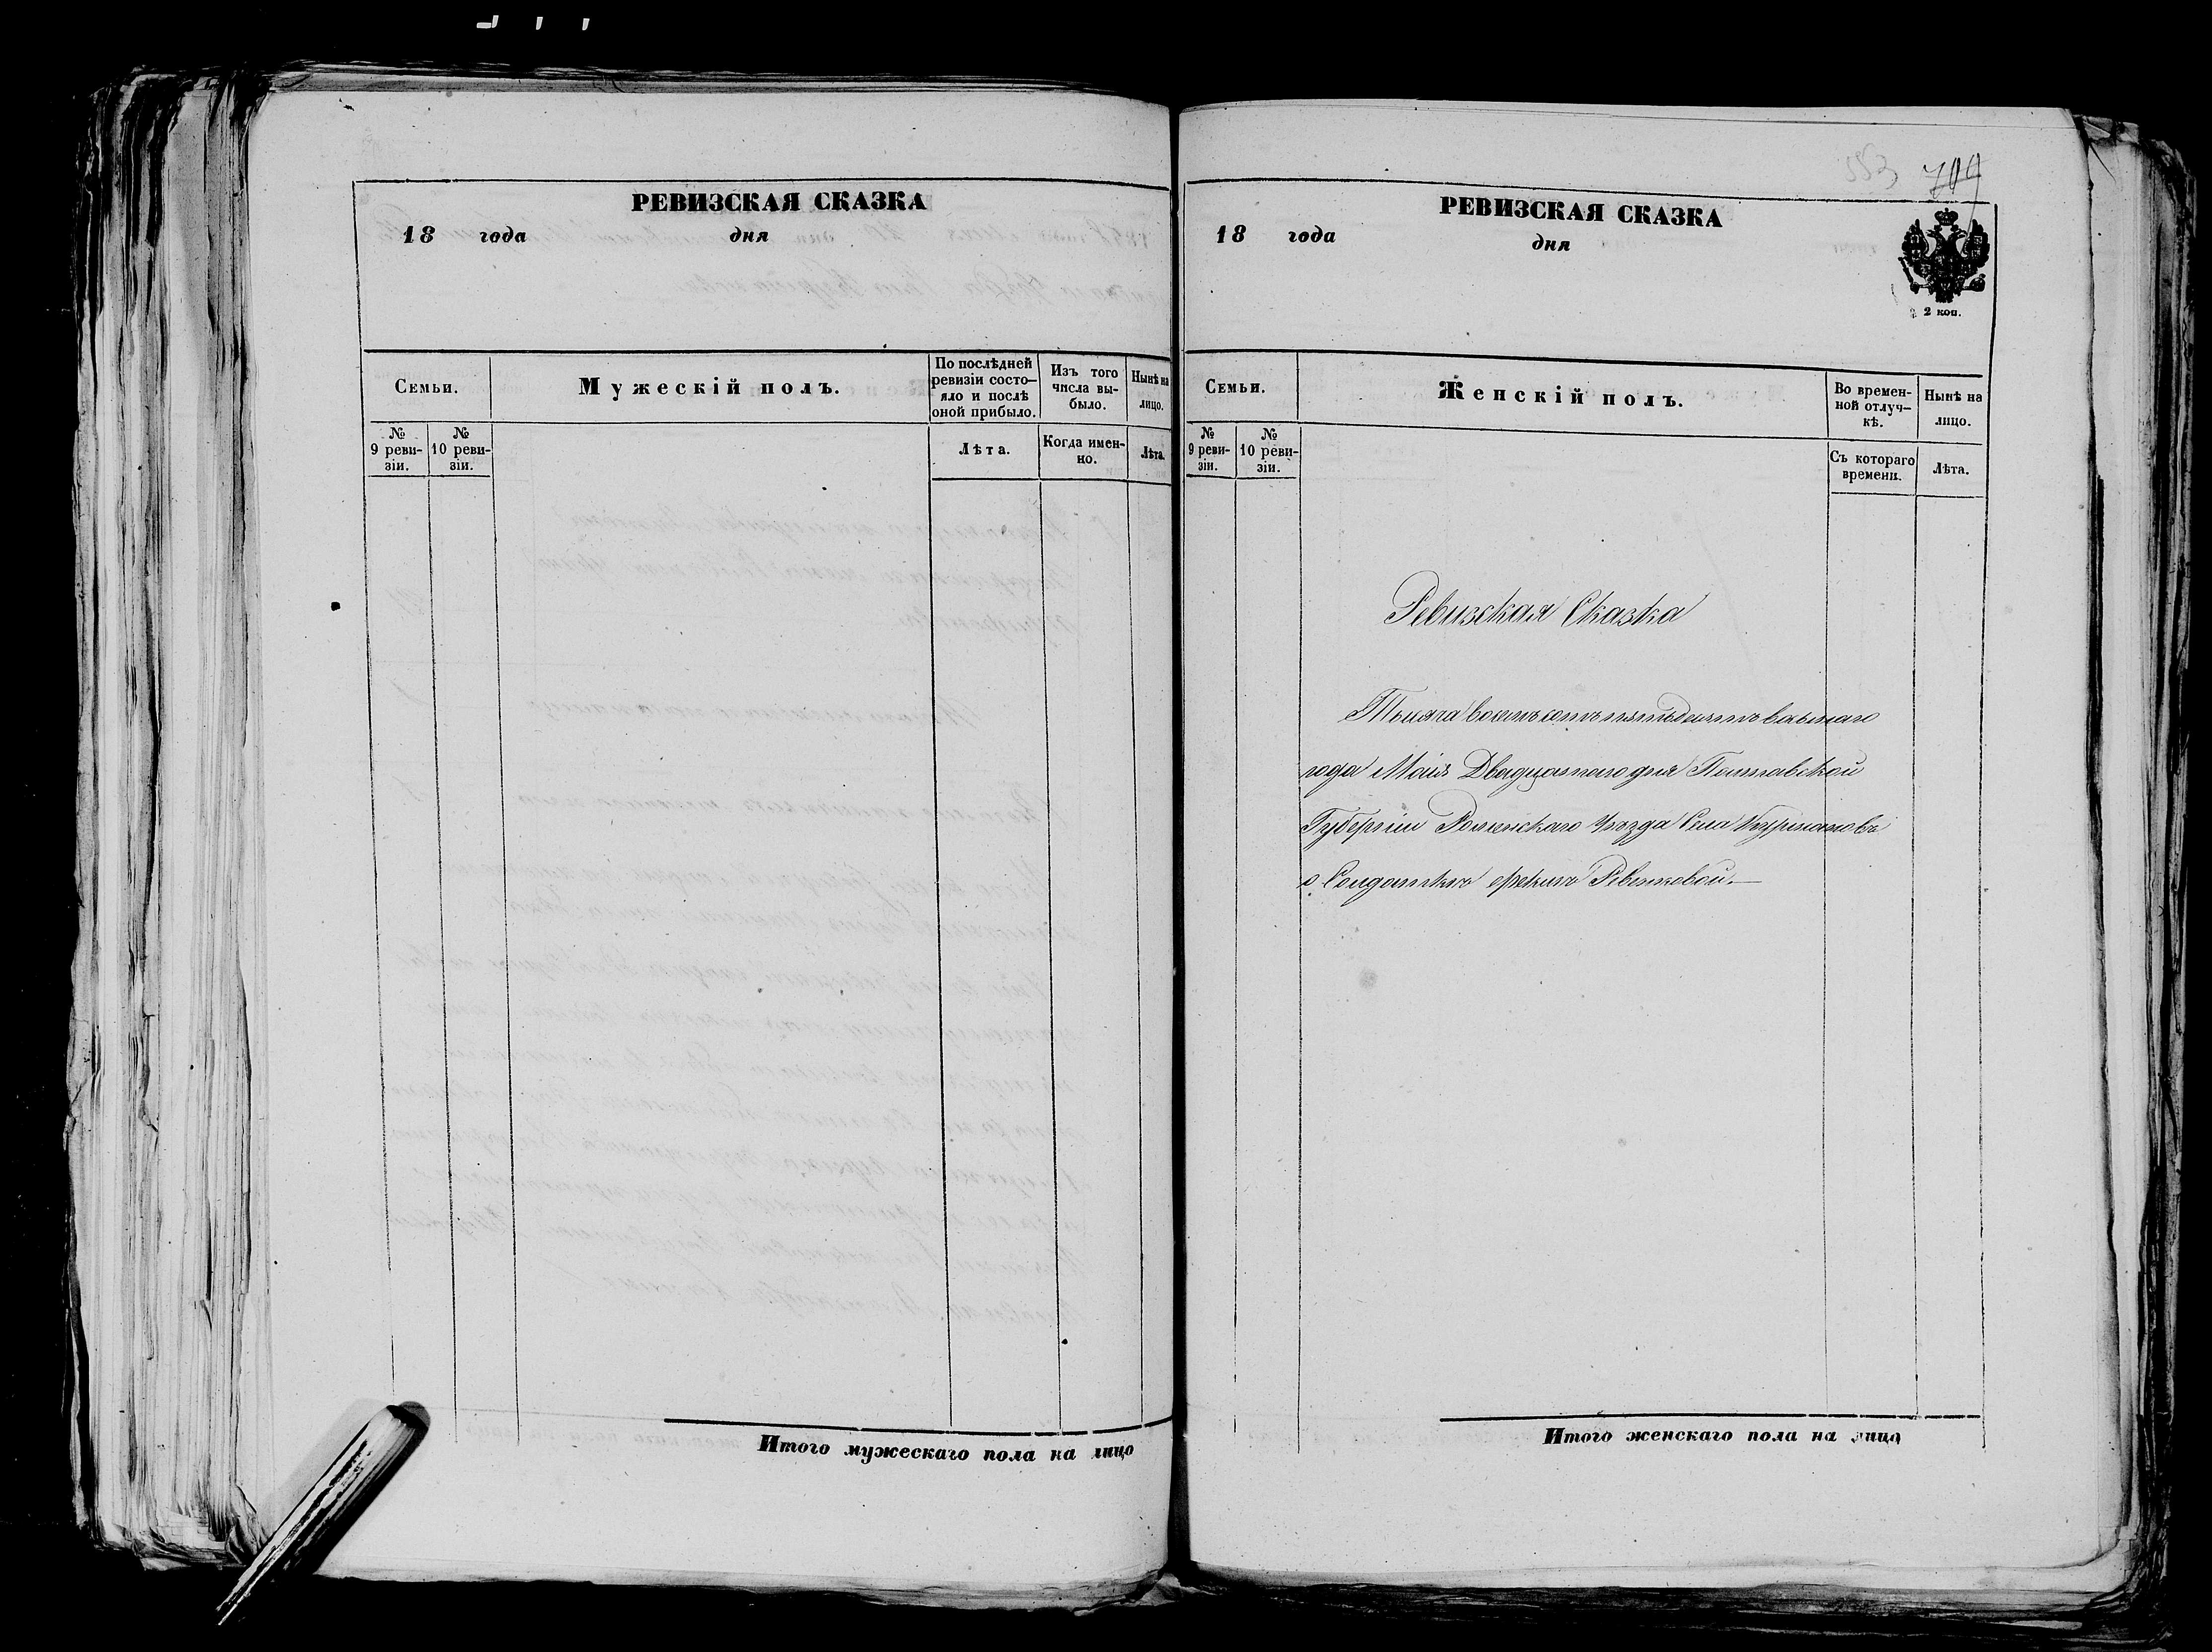 РЕВИЗСКАЯ СКАЗКА
18 года дня
Семьи.
Мужескій полъ.
По послѣдней ревизіи состо-яло и послѣ оной прибыло.
Изъ того числа вы-было.
Нынѣ на лицо.
№ 9 реви-зіи.
№ 10 реви-зіи.
Лѣта.
Когда имен-но.
Лѣта.
Итого мужескаго пола на лицо
709
РЕВИЗСКАЯ СКАЗКА
18 года дня
2 коп.
Семьи.
Женскій полъ.
Во времен-ной отлуч-кѣ.
Нынѣ на лицо.
№ 9 реви-зіи.
№ 10 реви-зіи.
Съ котораго времени.
Лѣта.
Ревизская Сказка
Тысяча восемъсотъ пятьдесятъ восьмаго
года Маія Двадцатаго дня Полтавской
Губерніи Роменскаго Уѣзда Села
о Солдаткѣ
Итого женскаго пола на лицо